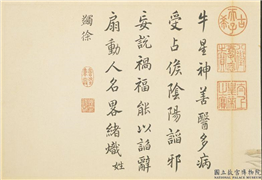 牛星神善醫多病
受占候陰陽諂邪
妄說禍福能以諂辭
扇動人名畧緒熾姓
蠲徐
國立故宮博物院
NATIONAL PALACE MUSEUM